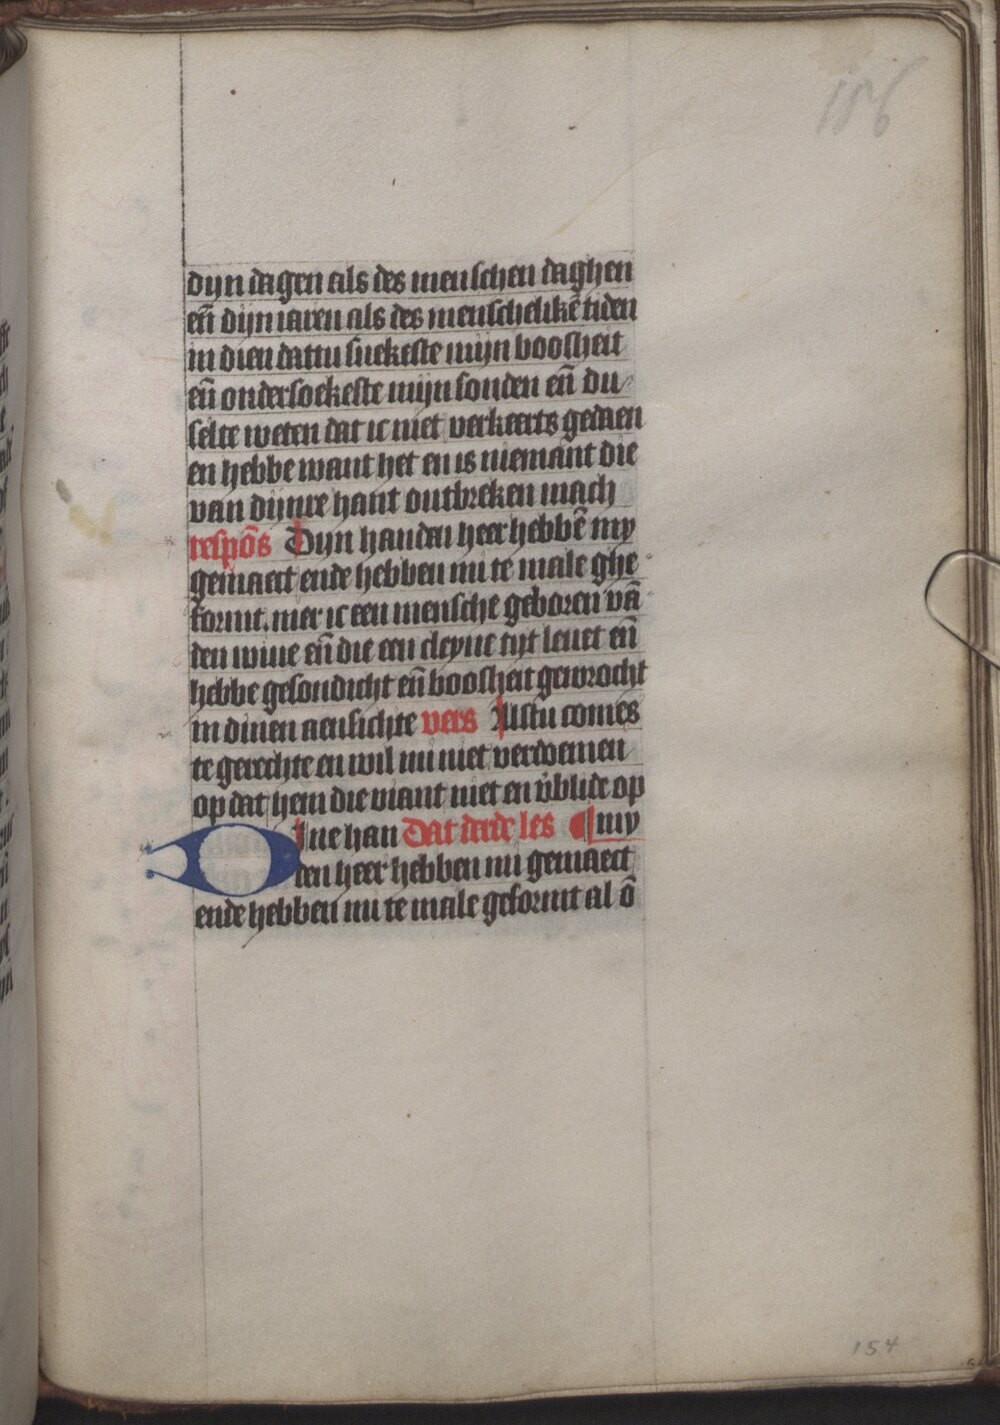 156
dyn dagen als des menschen daghen
en̄ dijn iaren als des menschelikē tiden
in dien dattu suekeste mijn boosheit
en̄ ondersoekeste mijn sonden en̄ du
selte weten dat ic niet verkeerts gedaen
en hebbe want het en is niemant die
van dijnre hant ontbreken mach
respōs Dyn handen heer hebbē my
gemaect ende hebben mi te male ghe
formt. mer ic een mensche geboren vā
den wiue en̄ die een cleyne tijt leuet en̄
hebbe gesondicht en̄ boosheit gewrocht
in dinen aensichte vers Alstu comes
te gerechte en wil mi niet verdoemen
op dat hem die viant niet en v̄blide op
Dine han Dat derde les ¶ my
den heer hebben mi gemaect
ende hebben mi te male geformt al ō
154